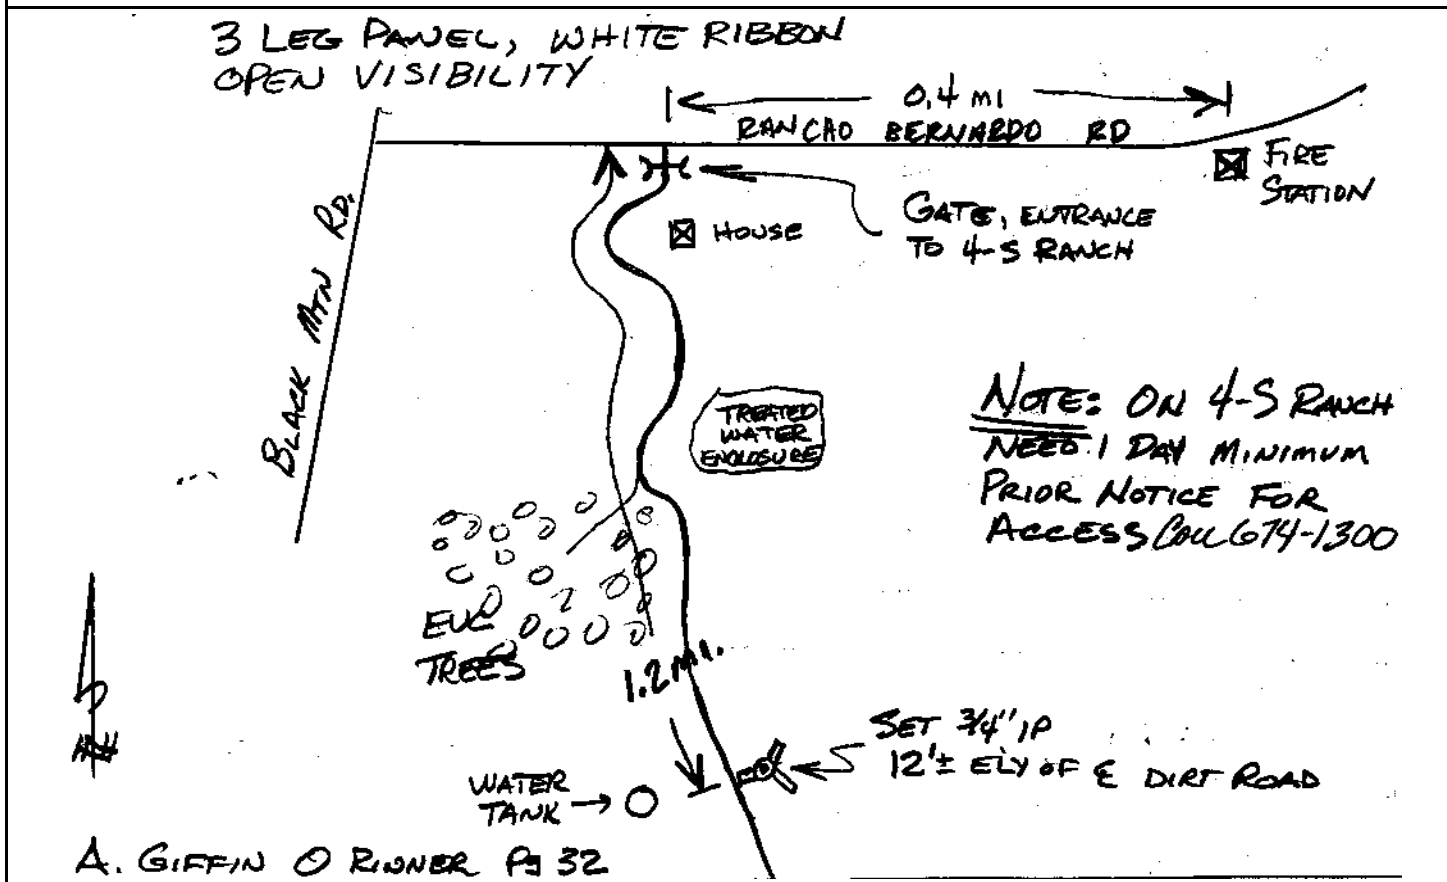 3 LEG PANEL, WHITE RIBBON
OPEN VISIBILITY
0.4 MI
RANCHO BERNARDO RD
FIRE
STATION
GATE, ENTRANCE
TO 4-S RANCH
HOUSE
BLACK MTN RD.
TREATED
WATER
ENCLOSURE
NOTE: ON 4-S RANCH
NEED 1 DAY MINIMUM
PRIOR NOTICE FOR
ACCESS CALL 674-1300
EUC
TREES
1.2 MI.
SET 3/4" IP
12'± ELY OF ℄ DIRT ROAD
WATER
TANK
A. GIFFIN O RINNER Pg 32